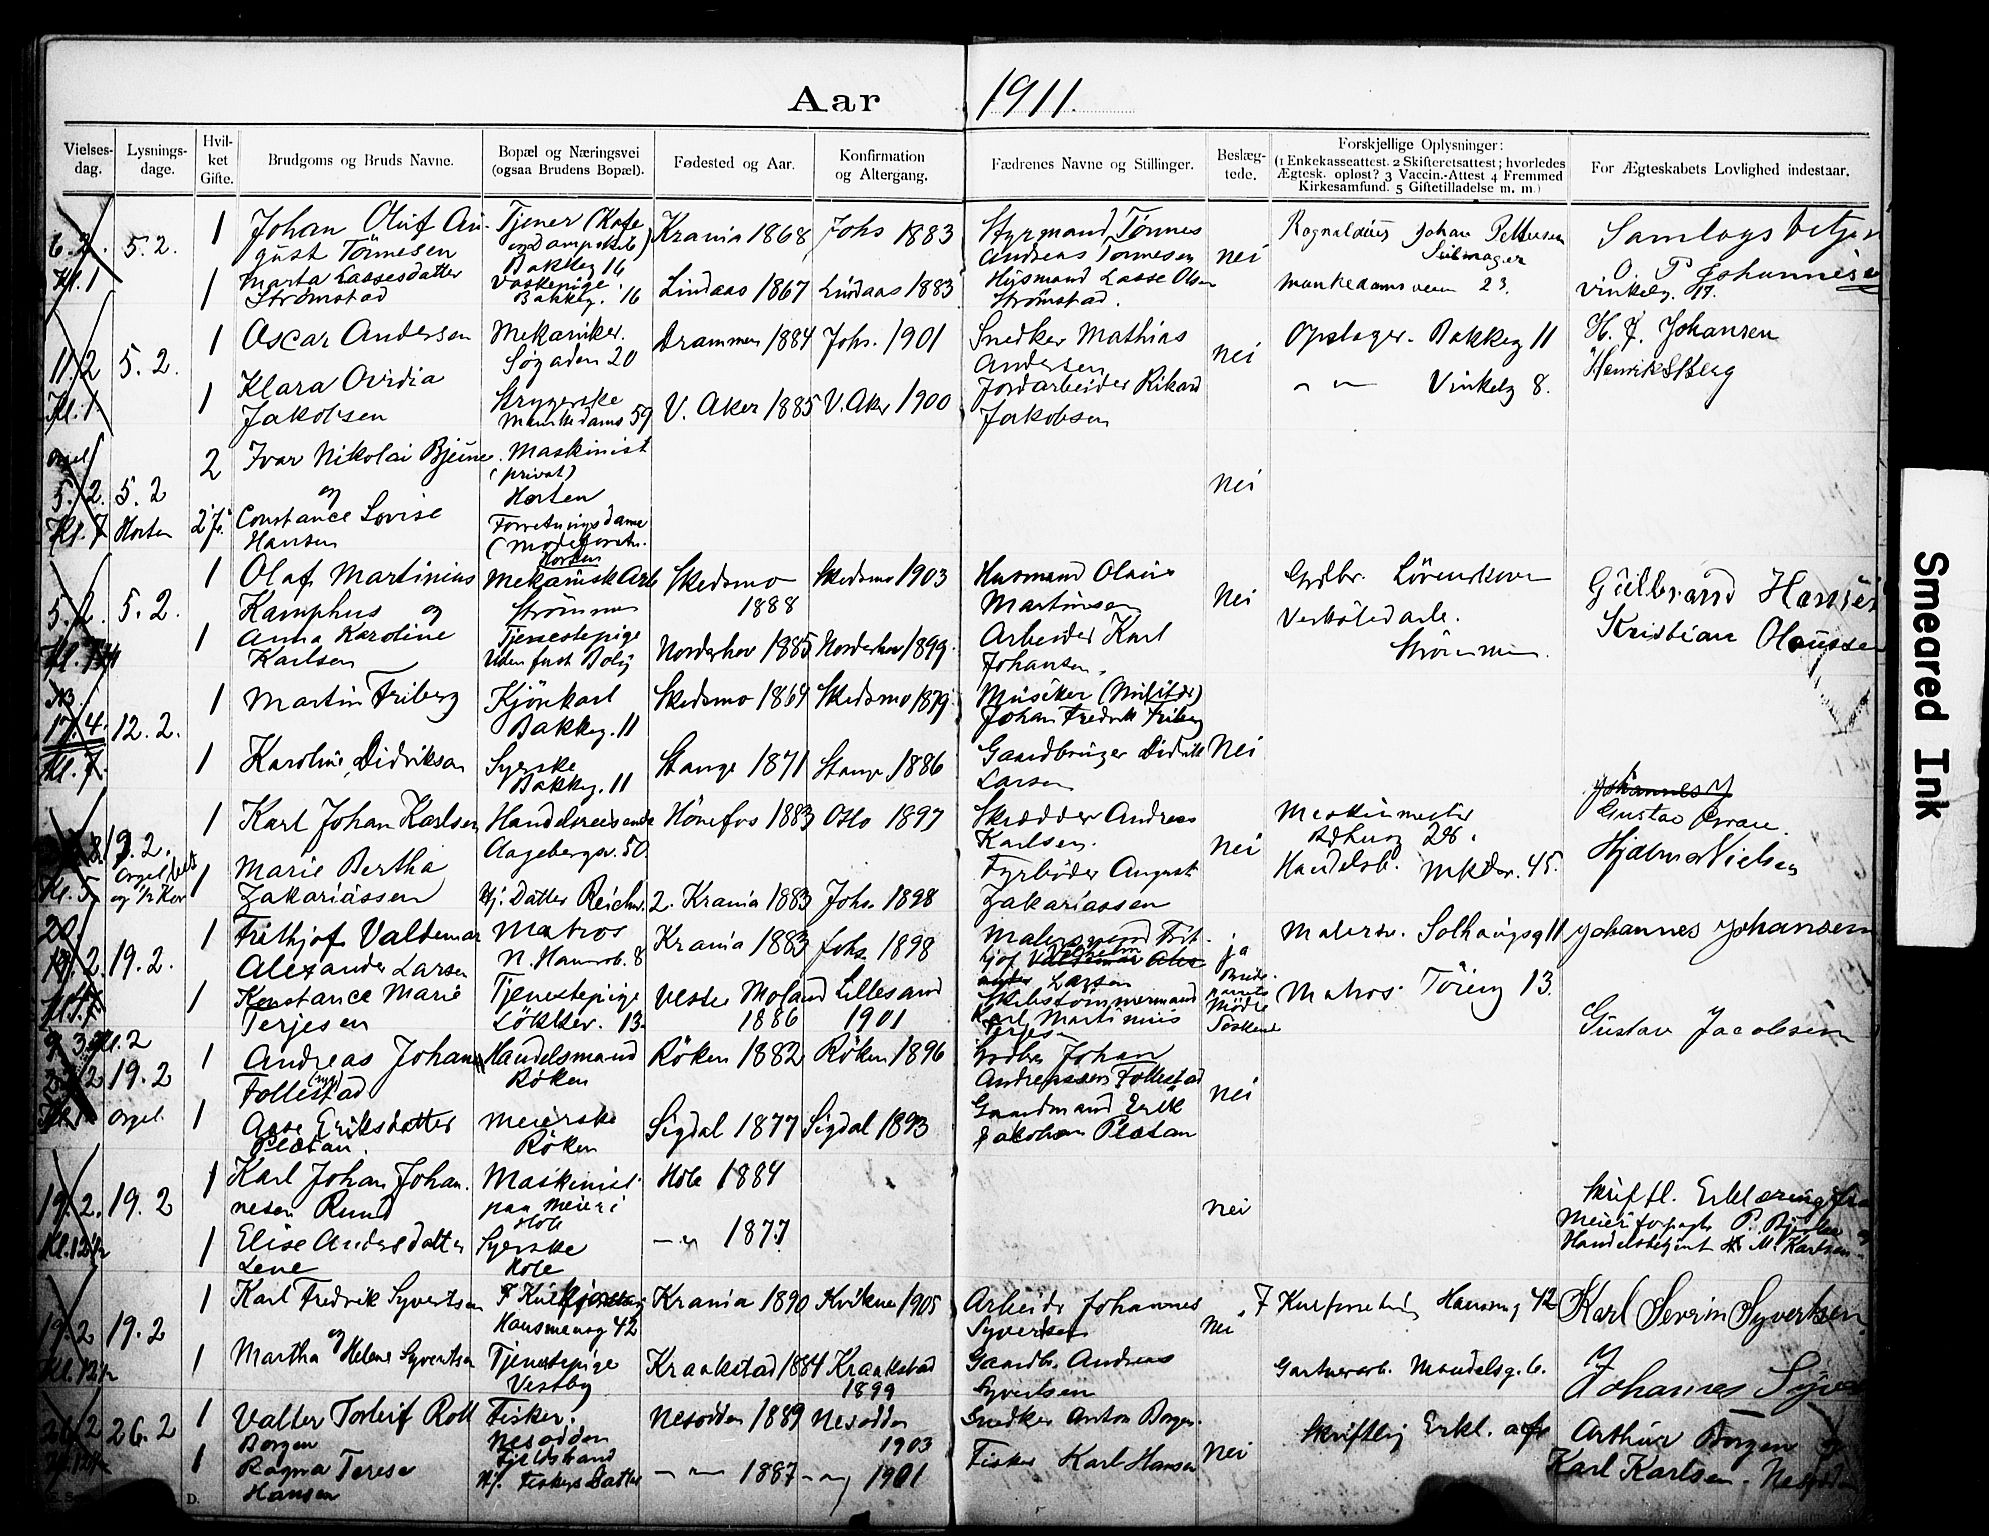 Aar 1911.
Vielses-dag. Lysnings-dage. Hvil-ket Gifte. Brudgoms og Bruds Navne. Bopæl og Næringsvei (ogsaa Brudens Bopæl). Fødested og Aar. Konfirmation og Altergang. Fædrenes Navne og Stillinger. Beslæg-tede. Forskjellige Oplysninger: (1 Enkekasseattest. 2 Skifteretsattest; hvorledes Ægtesk. opløst? 3 Vaccin.-Attest 4 Fremmed Kirkesamfund. 5 Giftetilladelse m. m.) For Ægteskabets Lovlighed indestaar.
6.2. Kl. 1 5.2. 1 Johan Oluf Au-
gust Tønnesen
Tjener (Kafe
Bakkeg 16
Krania 1868 Johs 1883
Styrmand Tønnes
Andreas Tønnesen
nei
Johan Pettersen
Samlags betjen
1 Marta Lassesdatter
Strømstad
Vaskepige
Bakkeg. 16
Lindaas 1867 Lindaas 1883
Husmand Lasse Olsen
Strømstad.
Munkedamsveien 23.
O. P. Johannesen
Vinkelg. 17.
11.2 Kl. 1 5.2. 1 Oscar Andersen
Mekaniker.
Søgaden 20
Drammen 1884 Johs. 1901
Snedker Mathias
Andersen
nei
Opslager. Bakkeg 11
H. J. Johansen
1 Klara Ovidia
Jakobsen
Strygerske
Munkedams 59
V. Aker 1885 V. Aker 1900
Jordarbeider Rikard
Jakobsen
Vinkelg 8.
Henrik Berg
Orgel 5.2. Kl. 7 5.2 Horten 2 Ivar Nikolai Bjeine
og
Maskinist
(privat)
Horten
nei
Constance Lovise
Hansen
Forretningsdame
Horten
5.2. 5.2. 1 Olaf Martinius
Kamphus og
Mekanisk Arb
Strømmen
Skedsmo
1888
Skedsmo 1903
Husmand Olaus
Martinsen
nei
Grdbr. Lørenskoven
Gulbrand Hansen
1 Anna Karoline
Karlsen
Tjenestepige
Uden fast Bolig
Norderhov 1885 Norderhov 1899.
Arbeider Karl
Johansen.
Verkstedarb.
Strømmen.
Kristian Olaussen
17.4. Kl. 7. 12.2. 1 Martin Friberg
Kjørekarl
Bakkeg. 11
Skedsmo 1864 Skedsmo 1879.
Musiker (Militær)
Johan Fredrik Friberg
Nei
1 Karoline Didriksen
Syerske
Bakkeg. 11
Stange 1871 Stange 1886
Gaardbruger Didrik
Larsen
Kl. 5 19.2. Orgel
og 1/2 Kor
1 Karl Johan Karlsen
Handelsreisende
Aagebergv. 50.
Hønefos 1883 Oslo 1897
Skrædder Andreas
Karlsen.
nei
Maskinmester
Rathusg 28.
Johannes J
Gustav Graae.
1 Marie Bertha
Zakariassen
Hj. Datter Reichw. 2. Krania 1883 Johs. 1898
Fyrbøder August
Zakariassen
Handelsb. Mkdv. 45.
Hjalmar Nielsen
19.2. 19.2. 1 Frithjof Valdemar
Alexander Larsen
Matros
N. Hammerb. 8
Krania 1883 Johs. 1898
Malersvend Frit-
hjof
Larsen
ja
Malersv. Solhaugsg 11 Johannes Johansen
1 Konstance Marie
Terjesen
Tjenestepige
Løkkev. 13
Vestre Moland
1886
Lillesand
1901
Skibstømmermand
Karl Martinius
Terjesen
Mødre
Søskende
Matros Tøieng 13.
Gustav Jacobsen
19.2 Orgel. 1 Andreas Johan
Follestad
Handelsmand
Røken
Røken 1882 Røken 1896
Gaardbr Johan
Andreassen Follestad
nei
1 Aase Eriksdatter
Plætan.
Meierske
Røken
Sigdal 1877 Sigdal 1893
Gaardmand Erik
Jakobsen Plætan
19.2. Kl. 12 1/2 19.2 1 Karl Johan Johan-
nesen Rund
Maskinist
paa Meieri
Hole
Hole 1884
nei
Skriftl. Erklæring fra
Meieriforpagter P. Bjerke og
Handelsbetjent M. Karlsen
1 Elise Andersdatter
Lene
Syerske
Hole
1877
19.2 Kl. 12 1/2 19.2 1 Karl Fredrik Syvertsen
og
Hausmansg 42
Krania 1890 Kvikne 1905
Arbeider Johannes
Syvertsen
nei
Hausmansg 42
Karl Severin Syvertsen.
1 Martha Helene Syvertsen
Tjenestepige
Vestby
Kraakstad 1884 Kraakstad
1899
Gaardbr. Andreas
Syvertsen
Gartnerarb. Mandalsg. 6.
Johannes Syver
26.2 26.2 1 Valter Torleif Roll
Borgen
Fisker.
Nesodden
Nesodden 1889 Nesodden
1903
Snedker Anton Borgen
Nei
Skriftlig Erkl. af
Arthur Borgen og
1 Ragna Terese
Hansen
Fjeldstrand
Hj. Fiskers Datter
1887 1901
Fisker Karl Hansen
Karl Karlsen. Nesodden
Smeared Ink